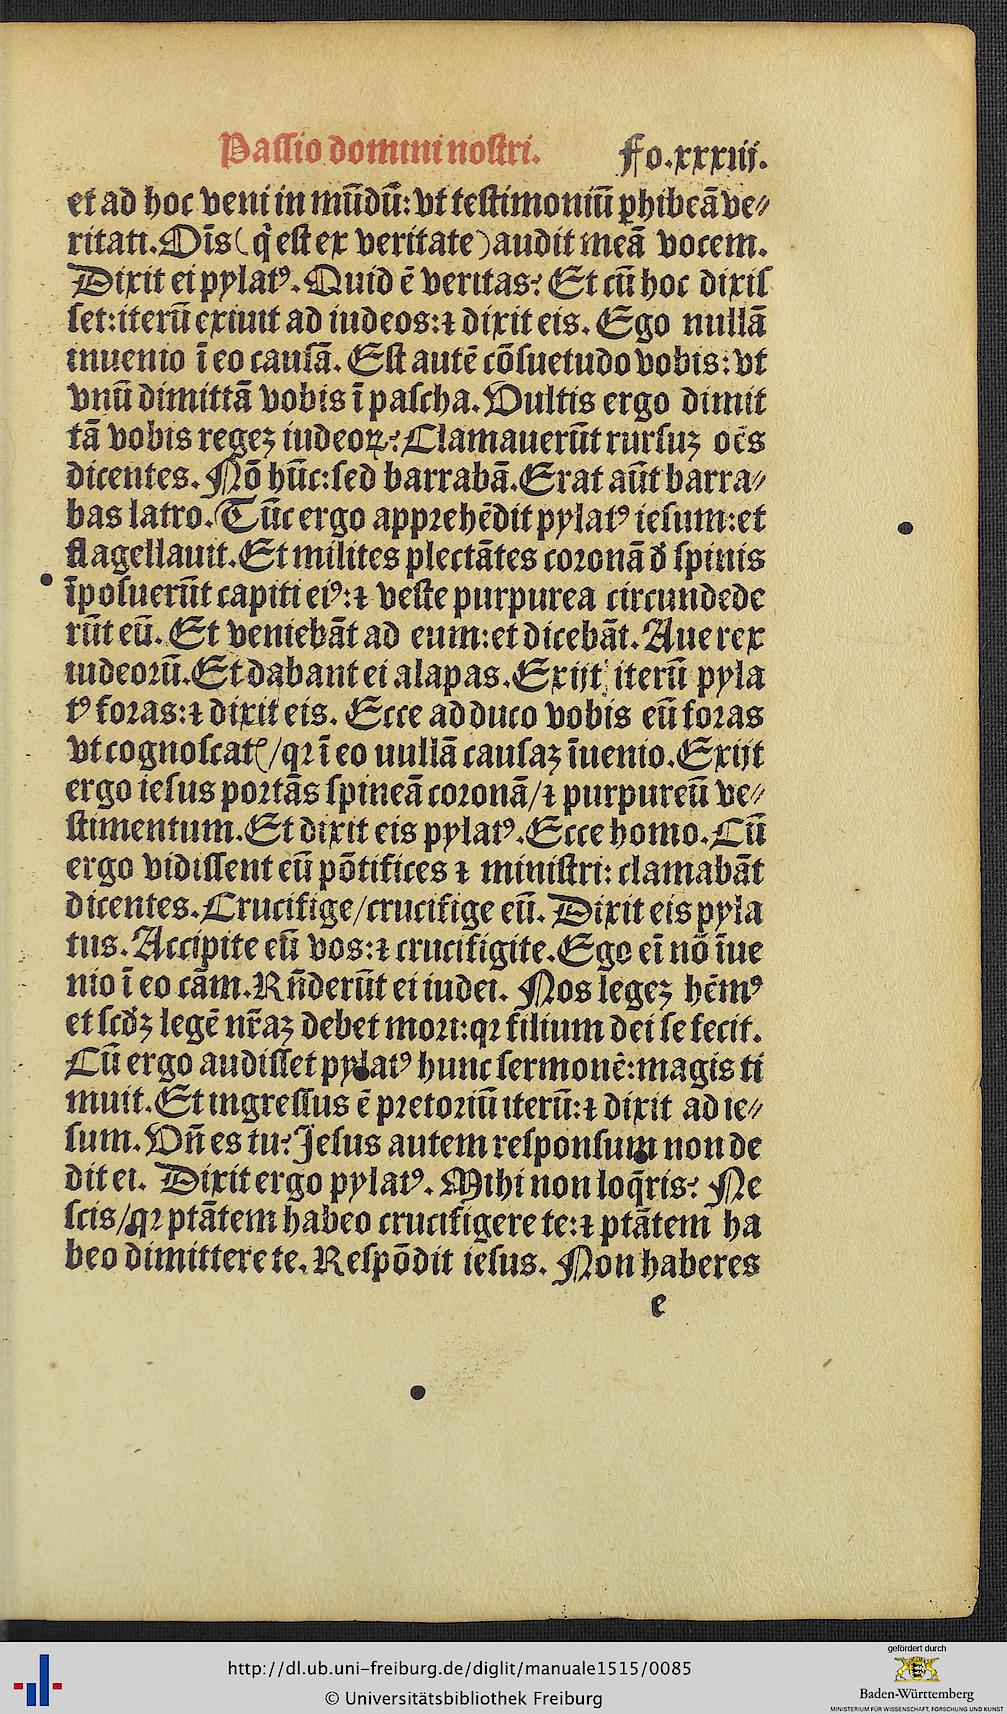 Passio domini nostri. Fo.xxxiij.
et ad hoc veni in mūdū: vt testimoniū ꝑhibeā ve⸗
ritati. Oīs (q̇ est ex veritate) audit meā vocem.
Dixit ei pylatꝰ. Quid ē veritas? Et cū hoc dixis
set: iterū exiuit ad iudeos: ⁊ dixit eis. Ego nullā
inuenio ī eo causā. Est autē cōsuetudo vobis: vt
vnū dimittā vobis ī pascha. Vultis ergo dimit
tā vobis regeꝫ iudeoꝝ? Clamauerūt rursuꝫ oēs
dicentes. Nō hūc: sed barrabā. Erat aūt barra⸗
bas latro. Tūc ergo apprehēdit pylatꝰ iesum: et
flagellauit. Et milites plectātes coronā đ spinis
īposuerūt capiti eiꝰ: ⁊ veste purpurea circundede
rūt eū. Et veniebāt ad eum: et dicebāt. Aue rex
iudeorū. Et dabant ei alapas. Exijt iterū pyla
tꝰ foras: ⁊ dixit eis. Ecce adduco vobis eū foras
vt cognoscatꝭ/ qꝛ ī eo nullā causaꝫ īuenio. Exijt
ergo iesus portās spineā coronā/ ⁊ purpureū ve⸗
stimentum. Et dixit eis pylatꝰ. Ecce homo. Cū
ergo vidissent eū pōtifices ⁊ ministri: clamabāt
dicentes. Crucifige/ crucifige eū. Dixit eis pyla
tus. Accipite eū vos: ⁊ crucifigite. Ego eī nō īue
nio ī eo cām. Rn̄derūt ei iudei. Nos legeꝫ hēmꝰ
et scđꝫ legē nr̄aꝫ debet mori: qꝛ filium dei se fecit.
Cū ergo audisset pylatꝰ hunc sermonē: magis ti
muit. Et ingressus ē pretoriū iterū: ⁊ dixit ad ie⸗
sum. Vn̄ es tu? Jesus autem responsum non de
dit ei. Dixit ergo pylatꝰ. Mihi non loq̄ris? Ne
scis/ qꝛ ptātem habeo crucifigere te: ⁊ ptātem ha
beo dimittere te. Respōdit iesus. Non haberes
e
http://dl.ub.uni-freiburg.de/diglit/manuale1515/0085
© Universitätsbibliothek Freiburg
gefördert durch
Baden-Württemberg
MINISTERIUM FÜR WISSENSCHAFT, FORSCHUNG UND KUNST